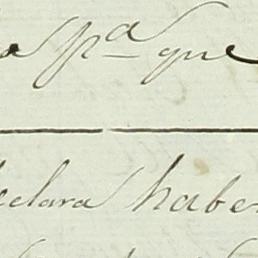 a p.ª que
declara haber